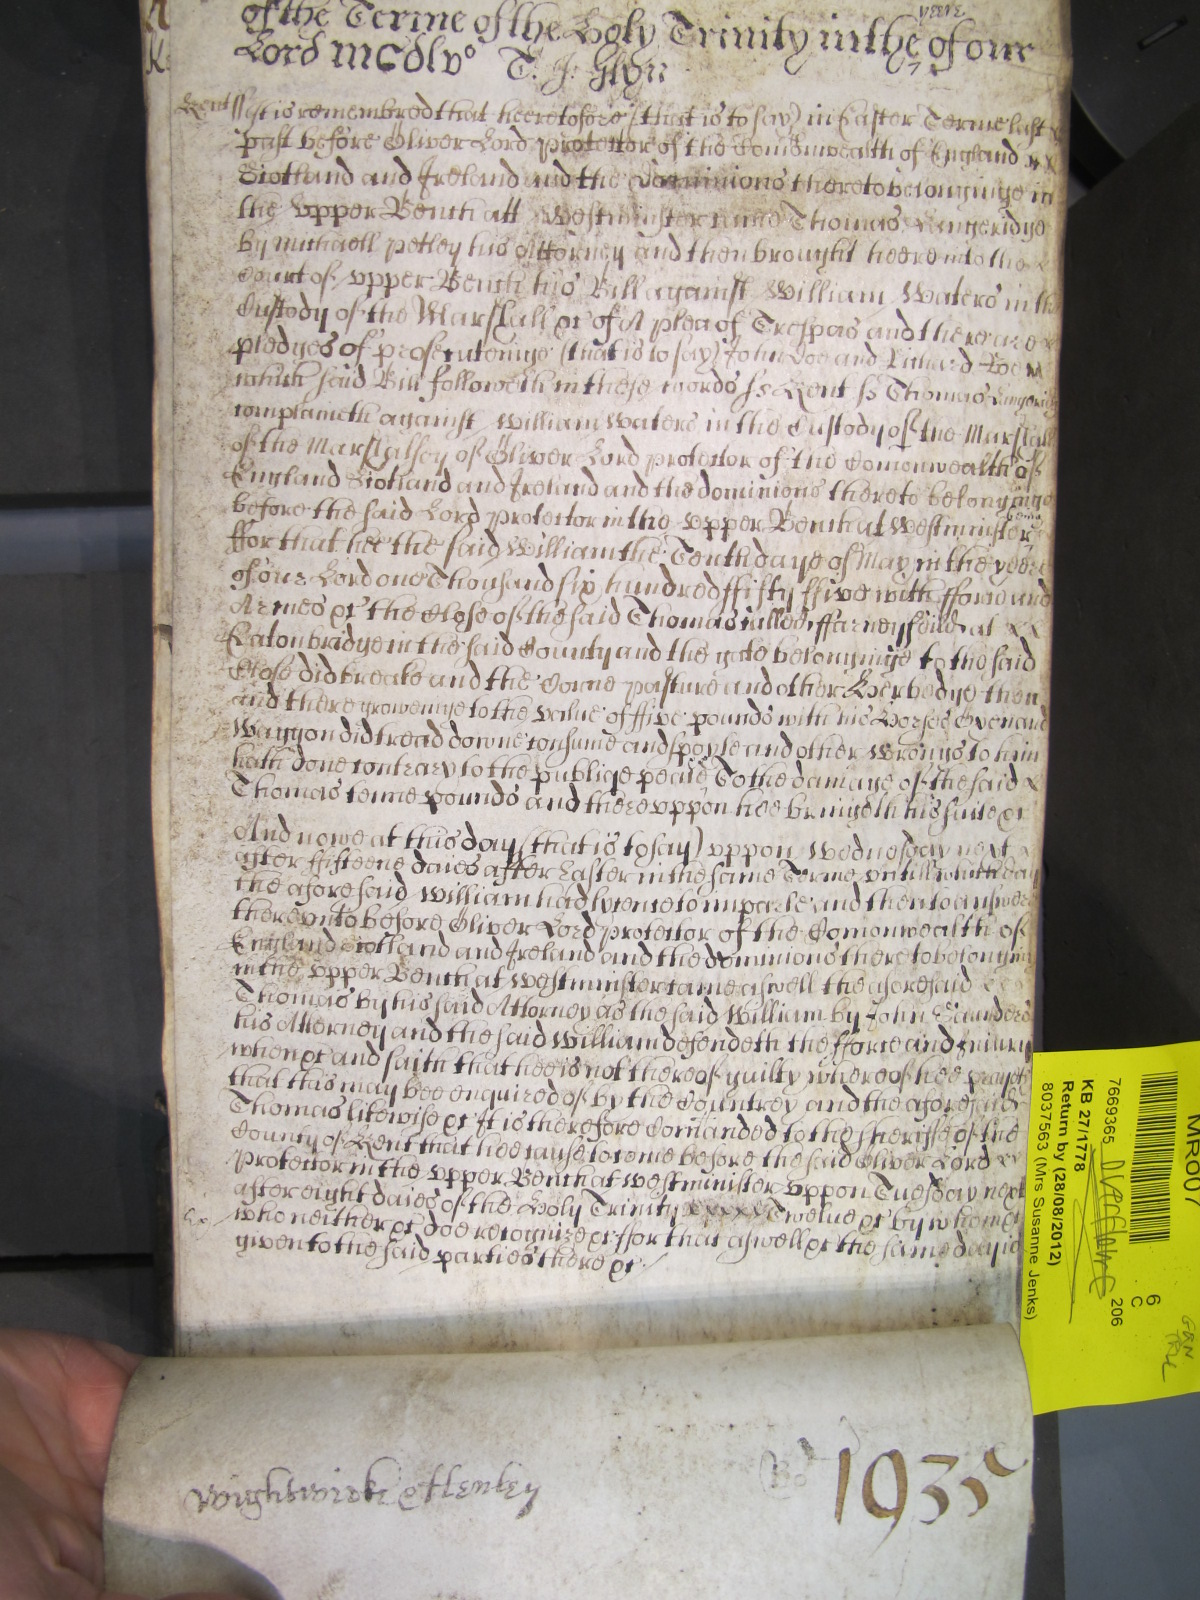 yeere
of the Terme of the Holy Trinity in the of our
Lord MCDLVo T. J. Glyn
Kent ss It is remembred that heeretofore (that is to say) in Easter Terme last
past before Oliver Lord Protector of the Comonwealth of England
Scotland and Ireland and the Dominions thereto belonginge in
the Upper Bench att Westminster came Thomas Lingeridge
by Michaell Petley his Attorney and then brought heere into the
Court of Upper Bench his Bill against William Waters in the
Custody of the Marshall &c of A plea of Trespas and there are
pledges of prosecuteinge (that is to say) John Doe and Richard Roe
which said Bill followeth in these words ss Kent ss Thomas Lingeridge
complaineth against William Waters in the Custody of the Marshall
of the Marshalsey of Oliver Lord protector of the Comonwealth of
England Scotland and Ireland and the dominions thereto belonginge
before the said Lord Protector in the Upper Bench at Westminster being
ffor that hee the said William the Tenth daye of May in the yeere
of our Lord one Thousand six hundred ffifty ffive with fforce and
Armes &c the Close of the said Thomas called ffarneyfeild at
Eatonbridge in the said County and the gate belonginge to the said
Close did breake and the Corne pasture and other Herbedge then
and there groweinge to the value of ffive pounds with his Horses Oxen and
Waggon did tread downe consume and spoyle and other wrongs to him
hath done contrary to the publiqe peace To the damage of the said
Thomas tenne Pounds and thereuppon hee bringeth his suite &c
And nowe at this day (that is to say) uppon Wednesday next
after ffifteene daies after Easter in the same Terme untill which day
the aforesaid William had lycence to imparle and then to answere
thereunto before Oliver Lord Protector of the Comonwealth of
England Scotland and Ireland and the dominions thereto belonging
in the Upper Bench at Westminster came aswell the aforesaid
Thomas by his said Attorney as the said William by John Saunders
his Atterney and the said William defendeth the fforce and Iniury
when &c and saith that hee is not thereof guilty whereof hee
that this may bee enquired of by the Countrey and the aforesaid
Thomas likewise &c It is therefore Comanded to the Sheriffe of the
County of Kent that hee cause to come before the said Oliver Lord
Protector in the Upper Bench at Westminister uppon Tuesday next
after eight daies of the Holy Trinity xxxxx Twelve &c by whome
who neither &c doe recognize &c ffor that aswell &c the same day is
given to the said parties there &c
Wightwicke & Henley
1935
MR007
7669365
KB 27/1778
Return by (28/08/2012)
8037563 (Mrs Susanne Jenks)
206
6
C